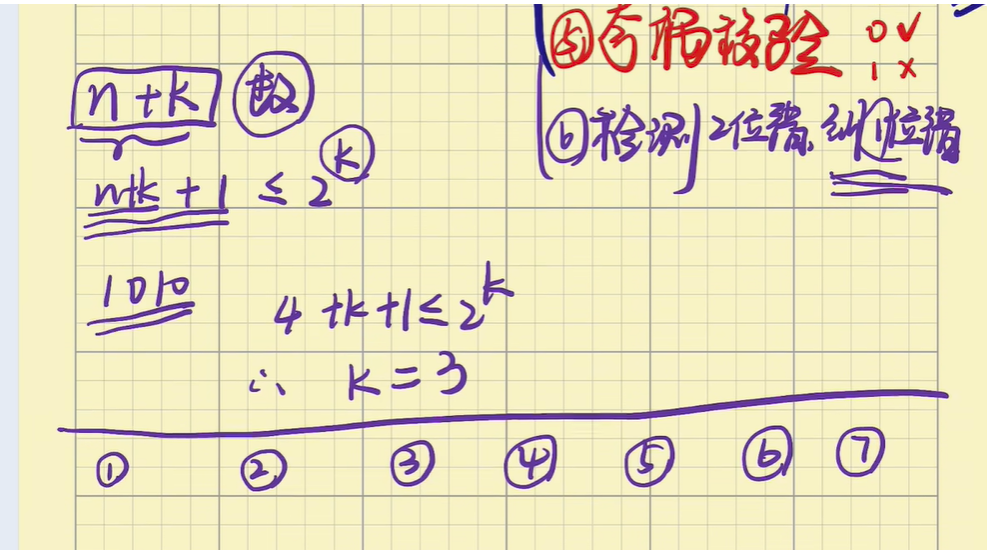 ⑤奇偶校验 0 ✓
1 ×
n+k 数
⑥检测2位错,纠1位错
n+k+1 ≤ 2^k
1010
4+k+1 ≤ 2^k
∴ k=3
① ② ③ ④ ⑤ ⑥ ⑦